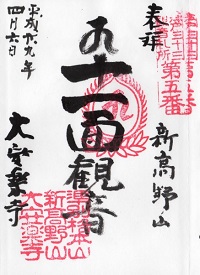 奉拝
第五番
新高野山
十一面観音
大安楽寺
平成廿九年
四月六日
新高野山
大安楽寺